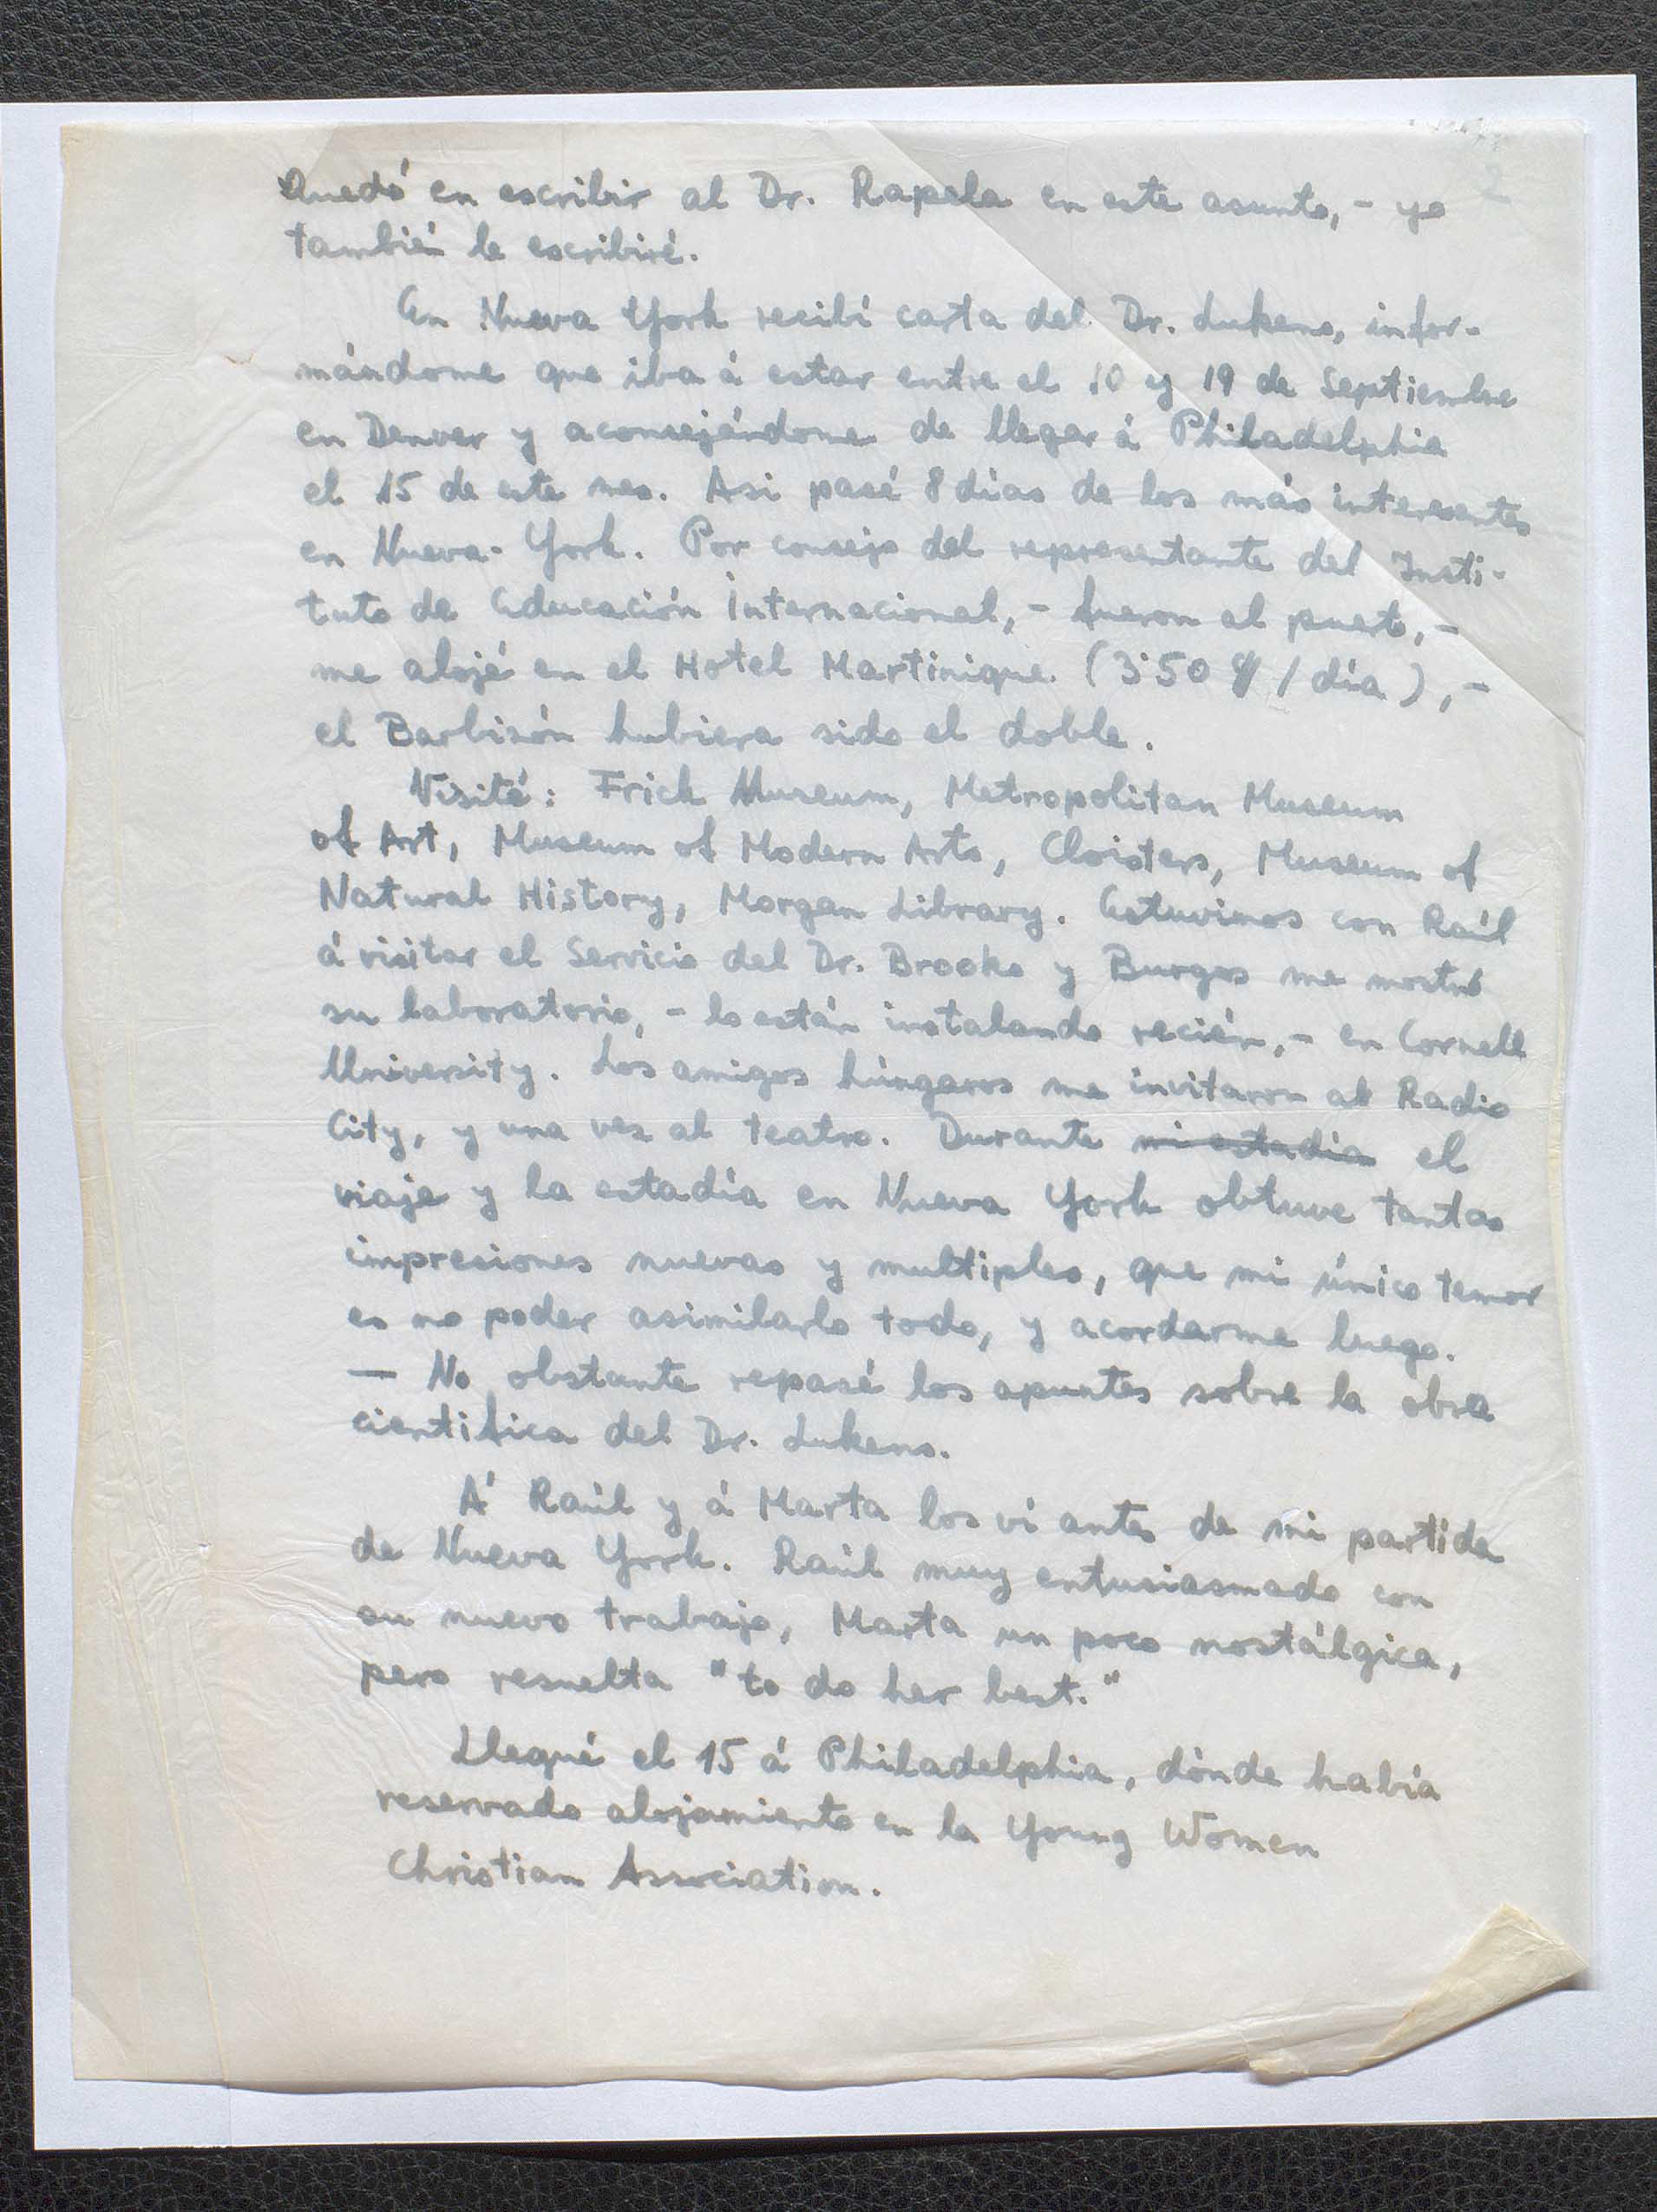 2
Quedó en escribir al Dr. Rapela en este asunto, - yo
también le escribiré.
En Nueva York recibí carta del Dr. Lukens, infor-
mándome que iba á estar entre el 10 y 19 de Septiembre
en Denver y aconsejándome de llegar á Philadelphia
el 15 de este mes. Asi pasé 8 días de los más interesantes
en Nueva-York. Por consejo del representante del Insti-
tuto de Educación Internacional, - fueron al puerto, -
me alojé en el Hotel Martinique (3'50 $ / día), -
el Barbizón hubiera sido el doble.
Visité: Frick Museum, Metropolitan Museum
of Art, Museum of Modern Arts, Cloisters, Museum of
Natural History, Morgan Library. Estuvimos con Raúl
á visitar el Servicio del Dr. Brooks y Burgos me mostró
su laboratorio, - lo están instalando recién, - en Cornell
University. Los amigos húngaros me invitaron al Radio
City, y una vez al teatro. Durante mi estadia el
viaje y la estadía en Nueva York obtuve tantas
impresiones nuevas y multiples, que mi único temor
es no poder asimilarlo todo, y acordarme luego.
— No obstante repasé los apuntes sobre la obra
cientifica del Dr. Lukens.
Á Raúl y á Marta los ví antes de mi partida
de Nueva York. Raúl muy entusiasmado con
su nuevo trabajo, Marta un poco nostálgica,
pero resuelta "to do her best."
Llegué el 15 á Philadelphia, dónde había
reservado alojamiento en la Young Women
Christian Association.